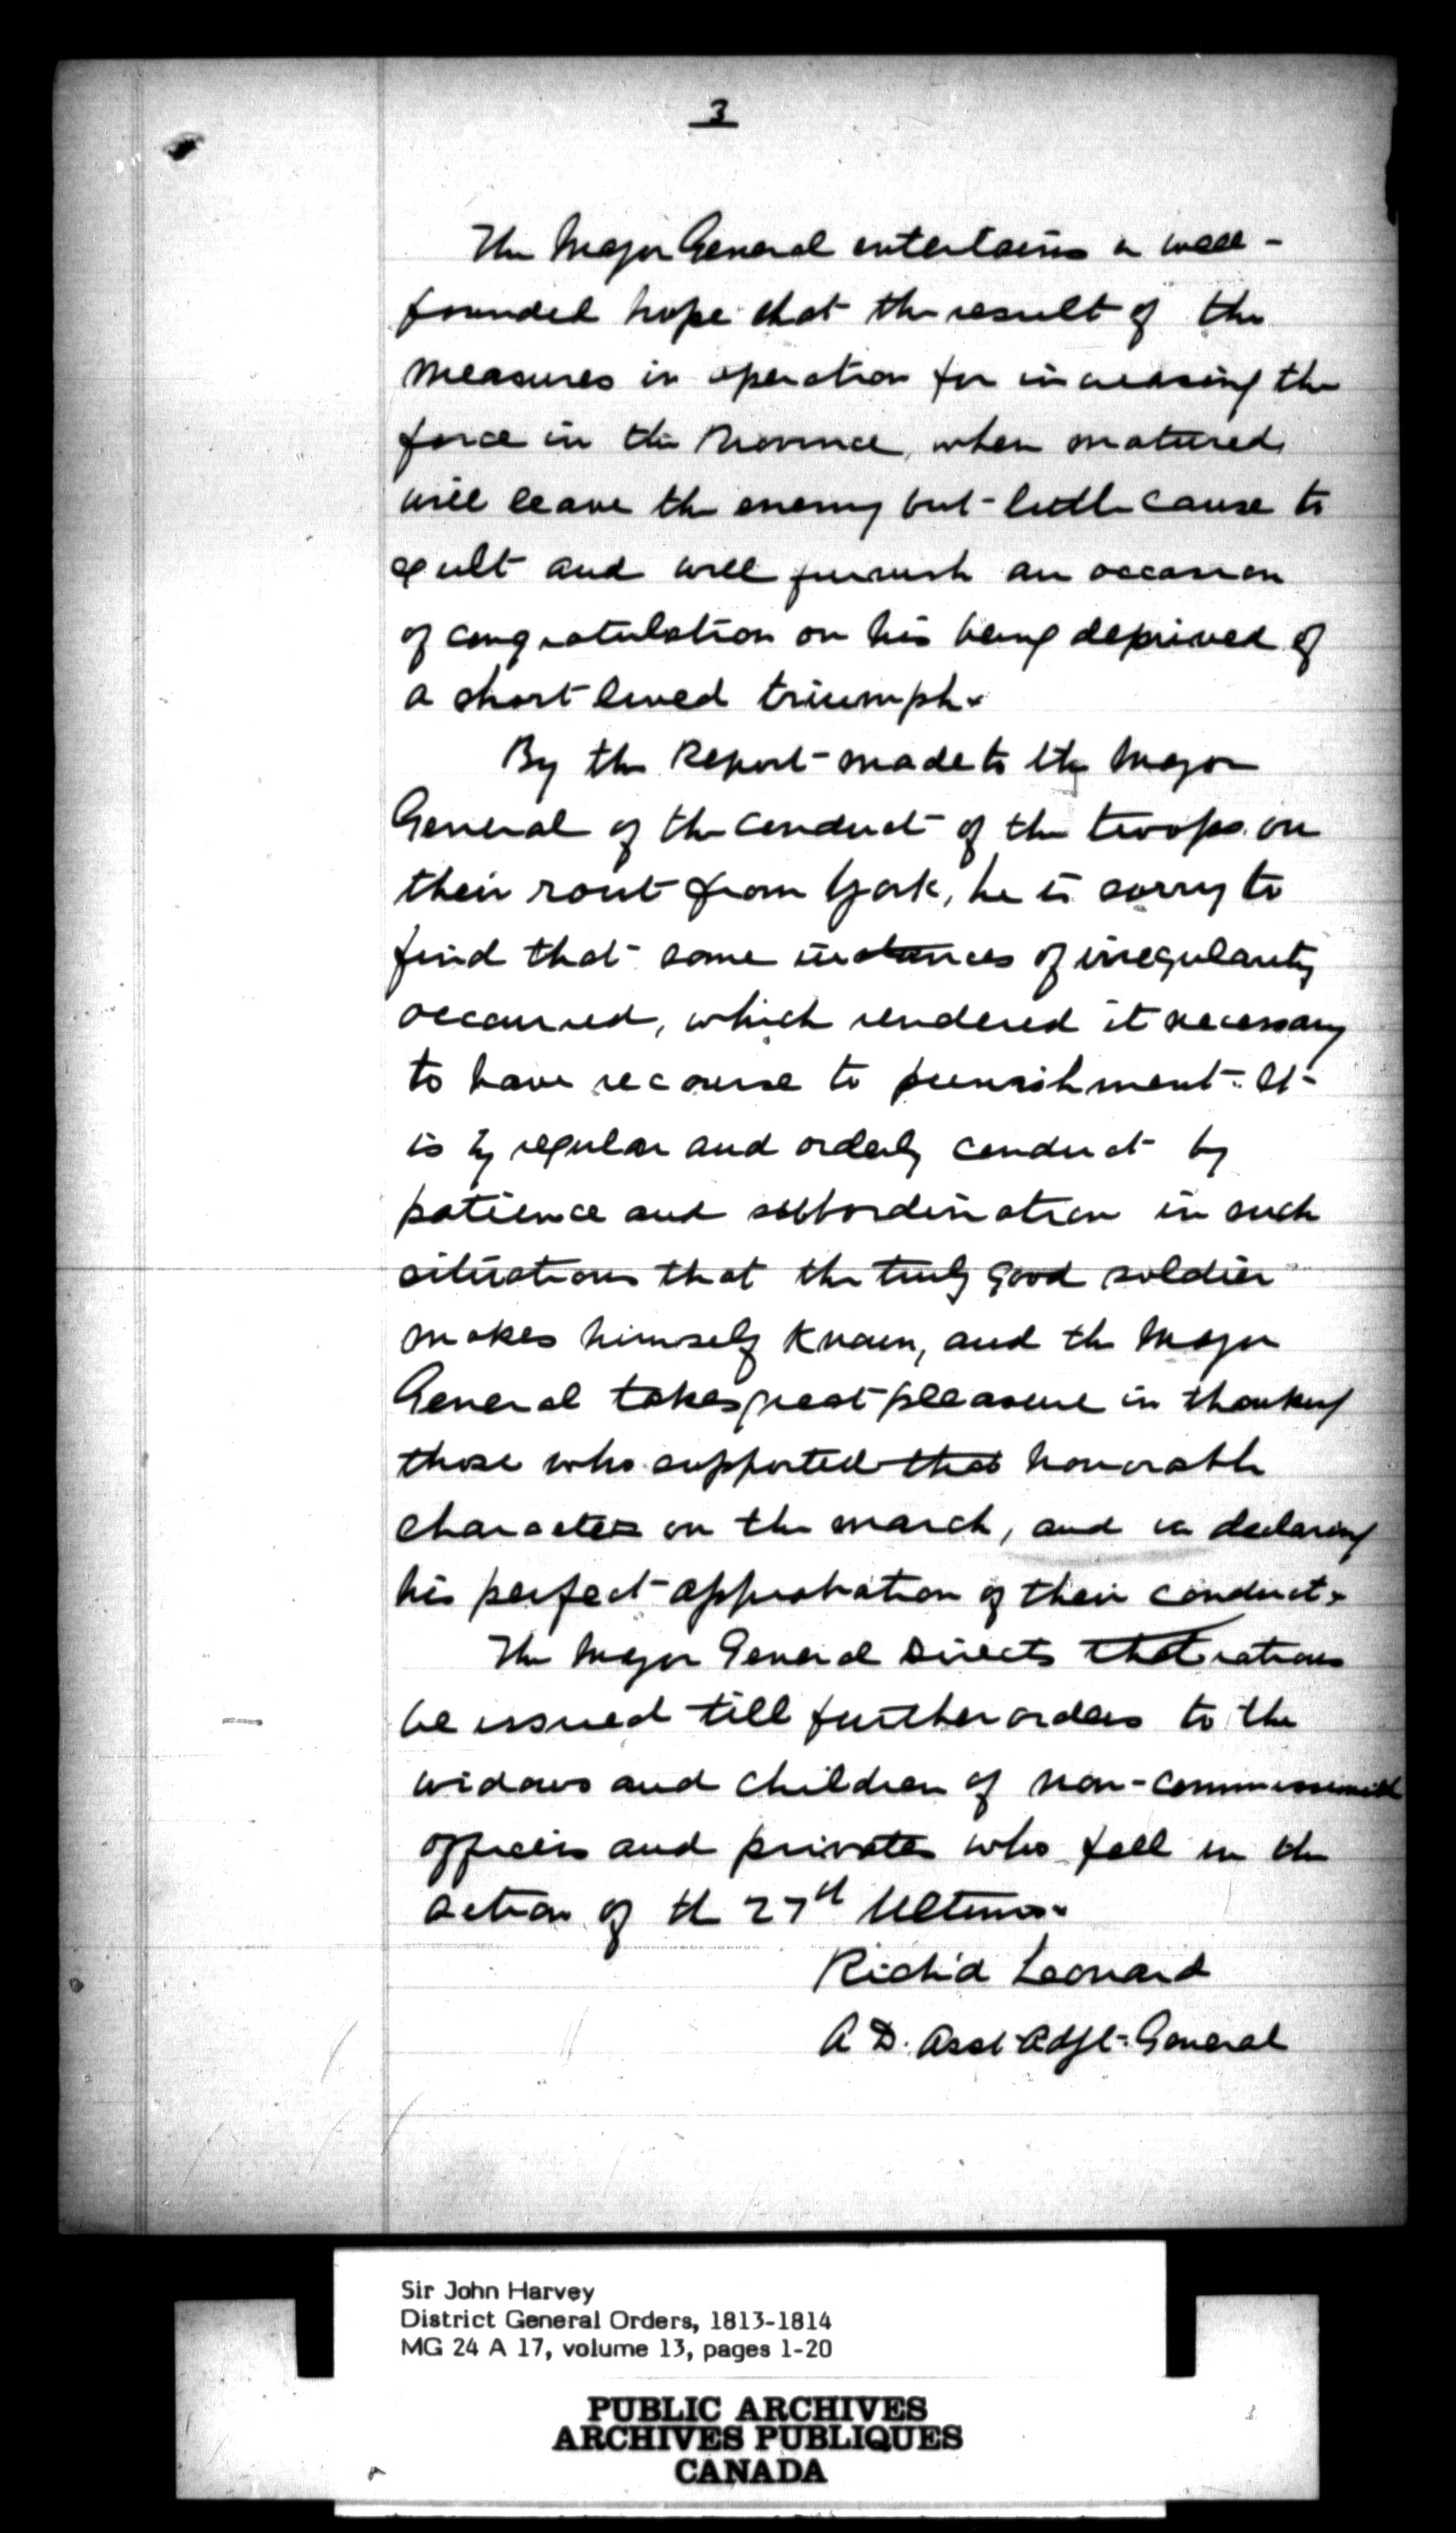 3
The Major General entertains a well-
founded hope that the result of the
measures in operation for increasing the
force in the Province, when matured,
will leave the enemy but little cause to
exult and will furnish an occasion
of congratulation on his being deprived of
a short lived triumph.
By the Report made to the Major
General of the conduct of the troops on
their rout from York, he is sorry to
find that some instances of irregularity
occurred, which rendered it necessary
to have recourse to punishment. It
is by regular and orderly conduct by
patience and subordination in such
situations that the truly good soldier
makes himself known, and the Major
General takes great pleasure in thanking
those who supported that honorable
character on the march, and in declaring
his perfect approbation of their conduct.
The Major General Directs that rations
be issued till further orders to the
widows and children of non-commissioned
officers and privates who fell in the
action of th 27th Ultimo.
Rich'd Leonard
A D. Asst Adjt. General
Sir John Harvey
District General Orders, 1813-1814
MG 24 A 17, volume 13, pages 1-20
PUBLIC ARCHIVES
ARCHIVES PUBLIQUES
CANADA